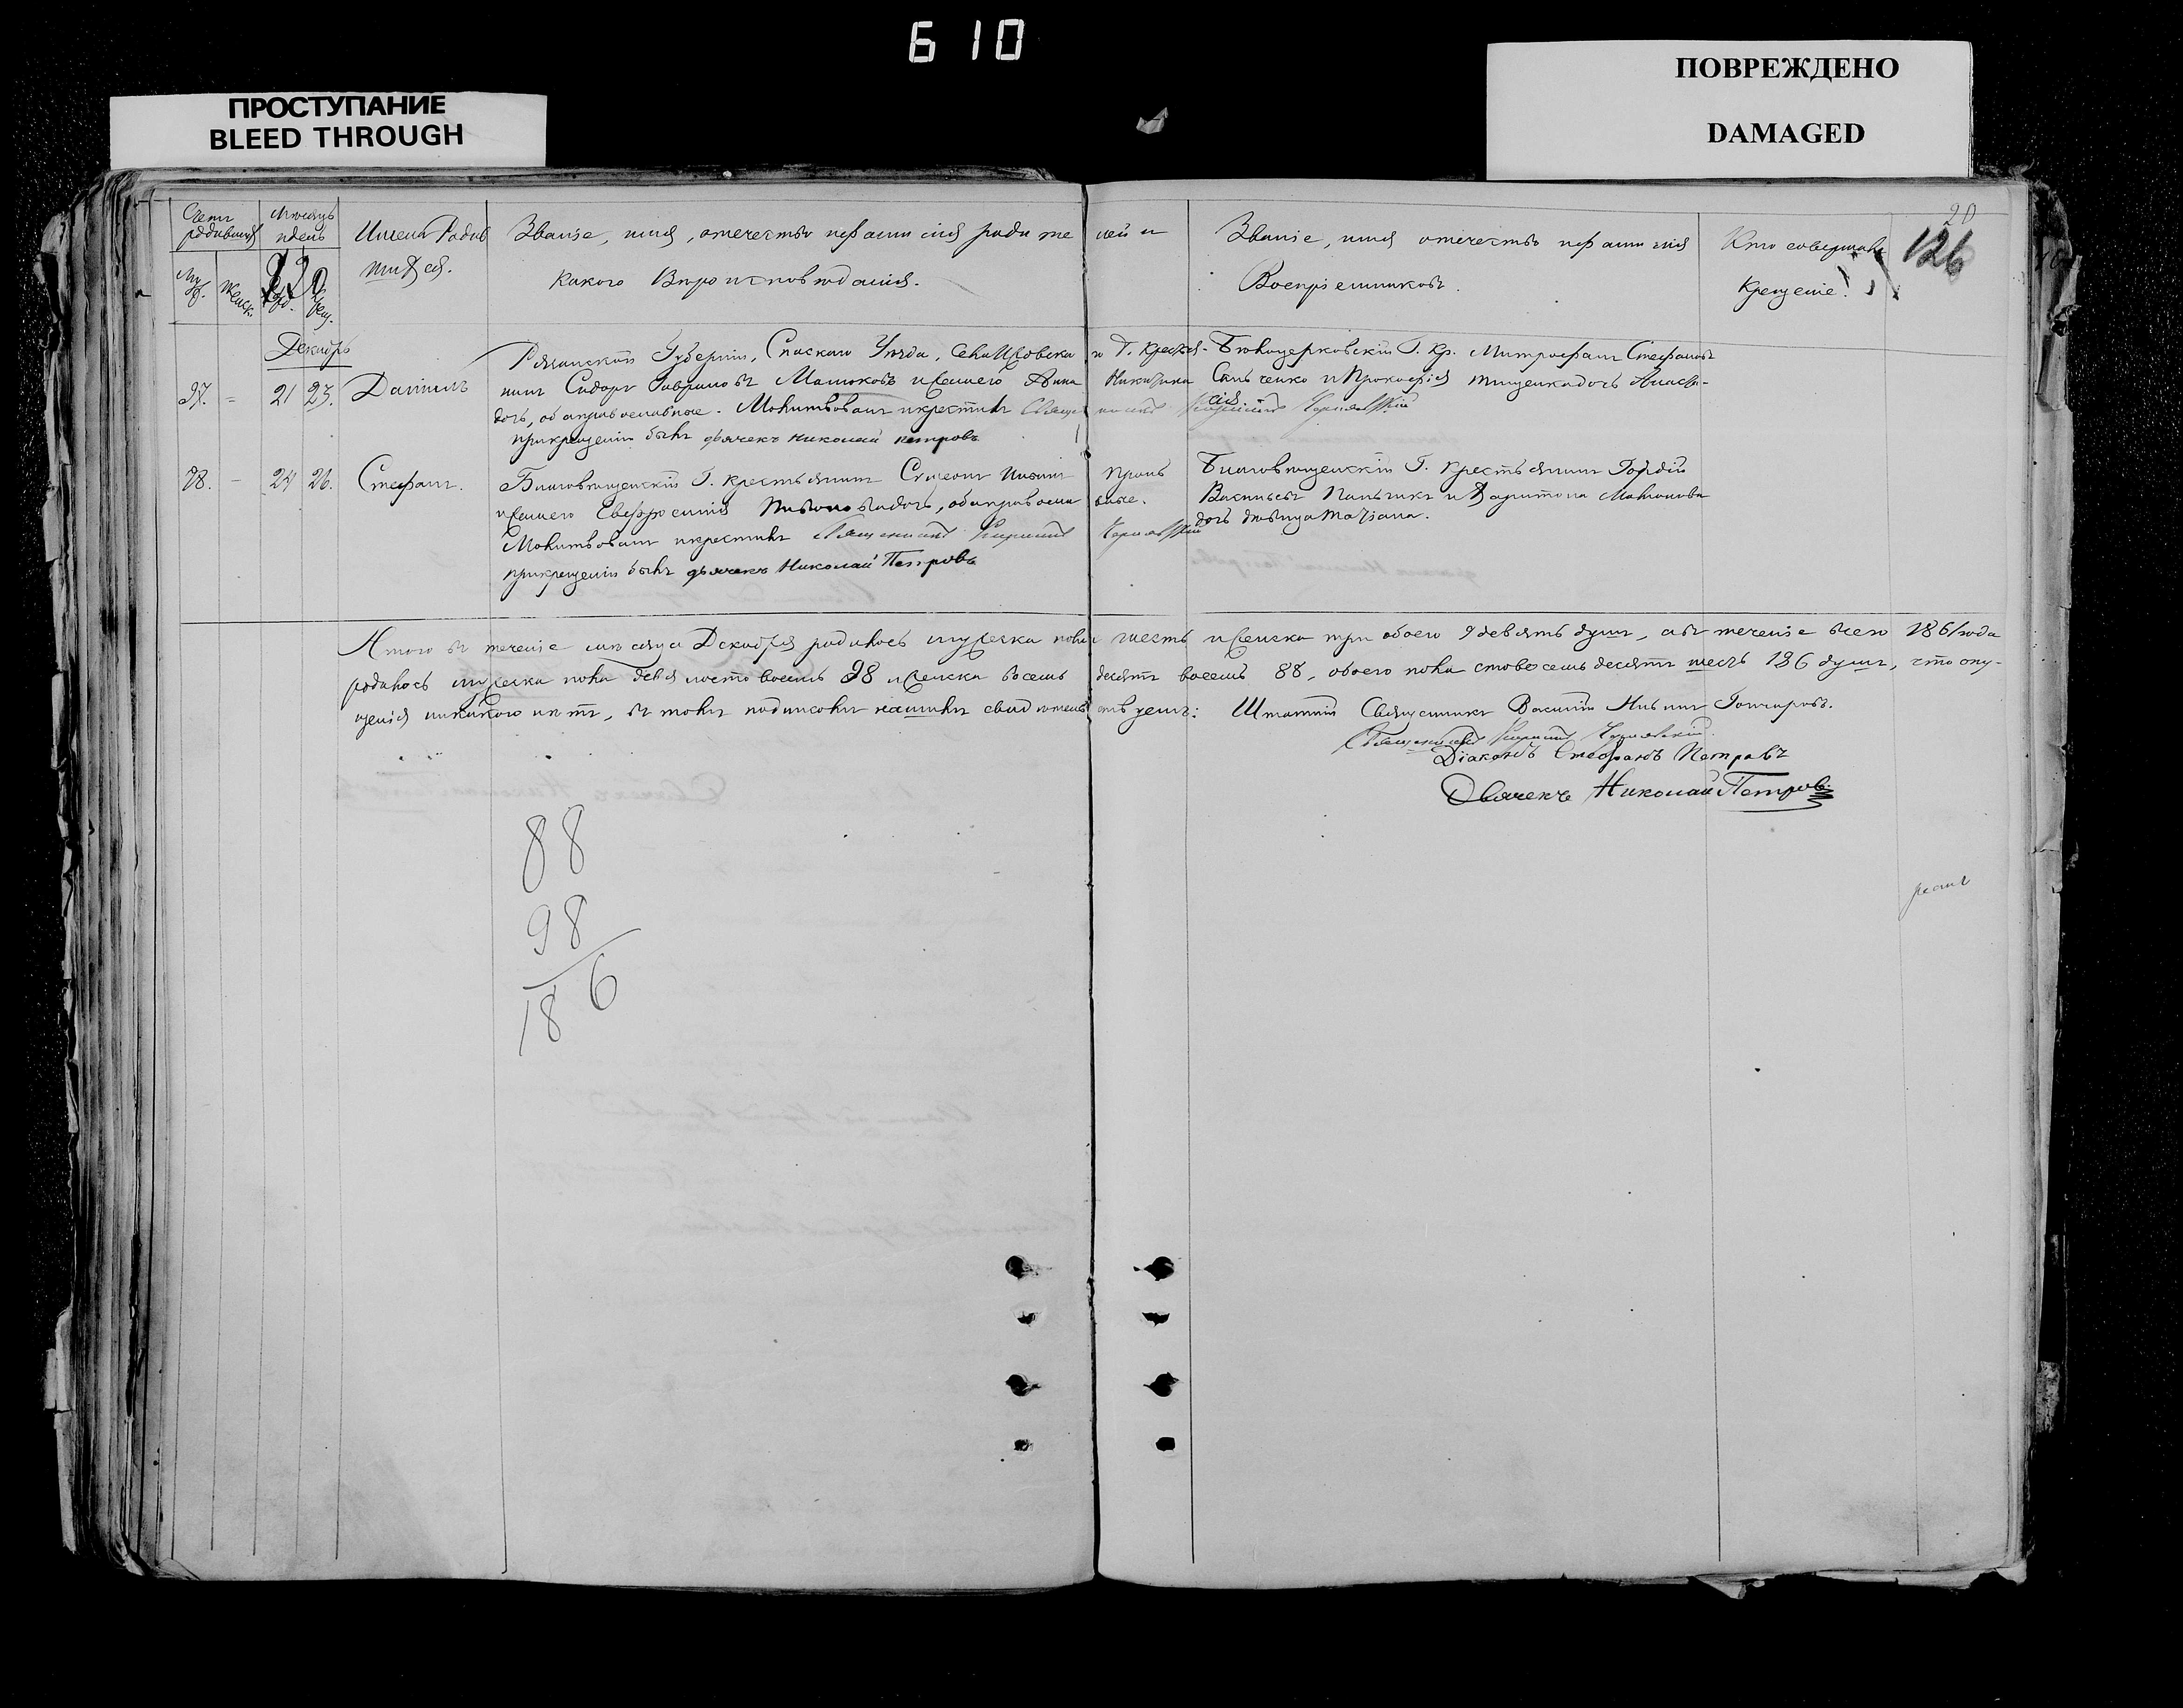 610
ПРОСТУПАНИЕ
BLEED THROUGH
ПОВРЕЖДЕНО
DAMAGED
20
126
Счетъ родившихся
Муж. Женск.
Мѣсяцъ и день
Рожд. Крещ.
Имена Родившихся.
Званіе, имя, отечество и фамилія родителей и
какого Вѣроисповѣданія.
Званіе, имя отечество и фамилія
Воспріемниковъ.
Кто совершалъ
Крещеніе.
Декабрь
97. - 21 23. Даніилъ
Рязанской Губерніи, Спаскаго Уѣзда, Села го Г. Кресть-
нинъ Сидоръ Гавриловъ Матюковъ и жена его Анна Никитина
дочь, оба православные. Молитвовалъ и крестилъ Священникъ
при крещеніи былъ дьячекъ Николай Петровъ
Бѣлоцерковскій Г. Кр. Митрофанъ Стефановъ
и Прокофія Тищенка дочь Анаста-
сія
98. - 24 26. Стефанъ.
Благовѣщенскій Г. крестьянинъ Симеонъ
и жена его Евфросинія дочь, оба православные.
Молитвовалъ и крестилъ Священникъ
при крещеніи былъ дьячекъ Николай Петровъ
Благовѣщенскій Г. крестьянинъ Гордій
Васильевъ и Харитона
дочь дѣвица Татіана.
Итого въ теченіе мѣсяца Декабря родилось мужеска пола шесть и женска три обоего 9 девять душъ, а въ теченіе всего 1861 года
родилось мужеска пола девяносто восемь 98 и женска восемьдесятъ восемь 88, обоего пола сто восемьдесятъ шесть 186 душъ, что опу-
щенія никакого нѣтъ, въ томъ подписомъ нашимъ свидѣтельствуемъ: Штатній Священникъ Василій Ильинъ Гончаровъ.
Священникъ
Діаконъ Стефанъ Петровъ
Дьячекъ Николай Петровъ
88
98
186